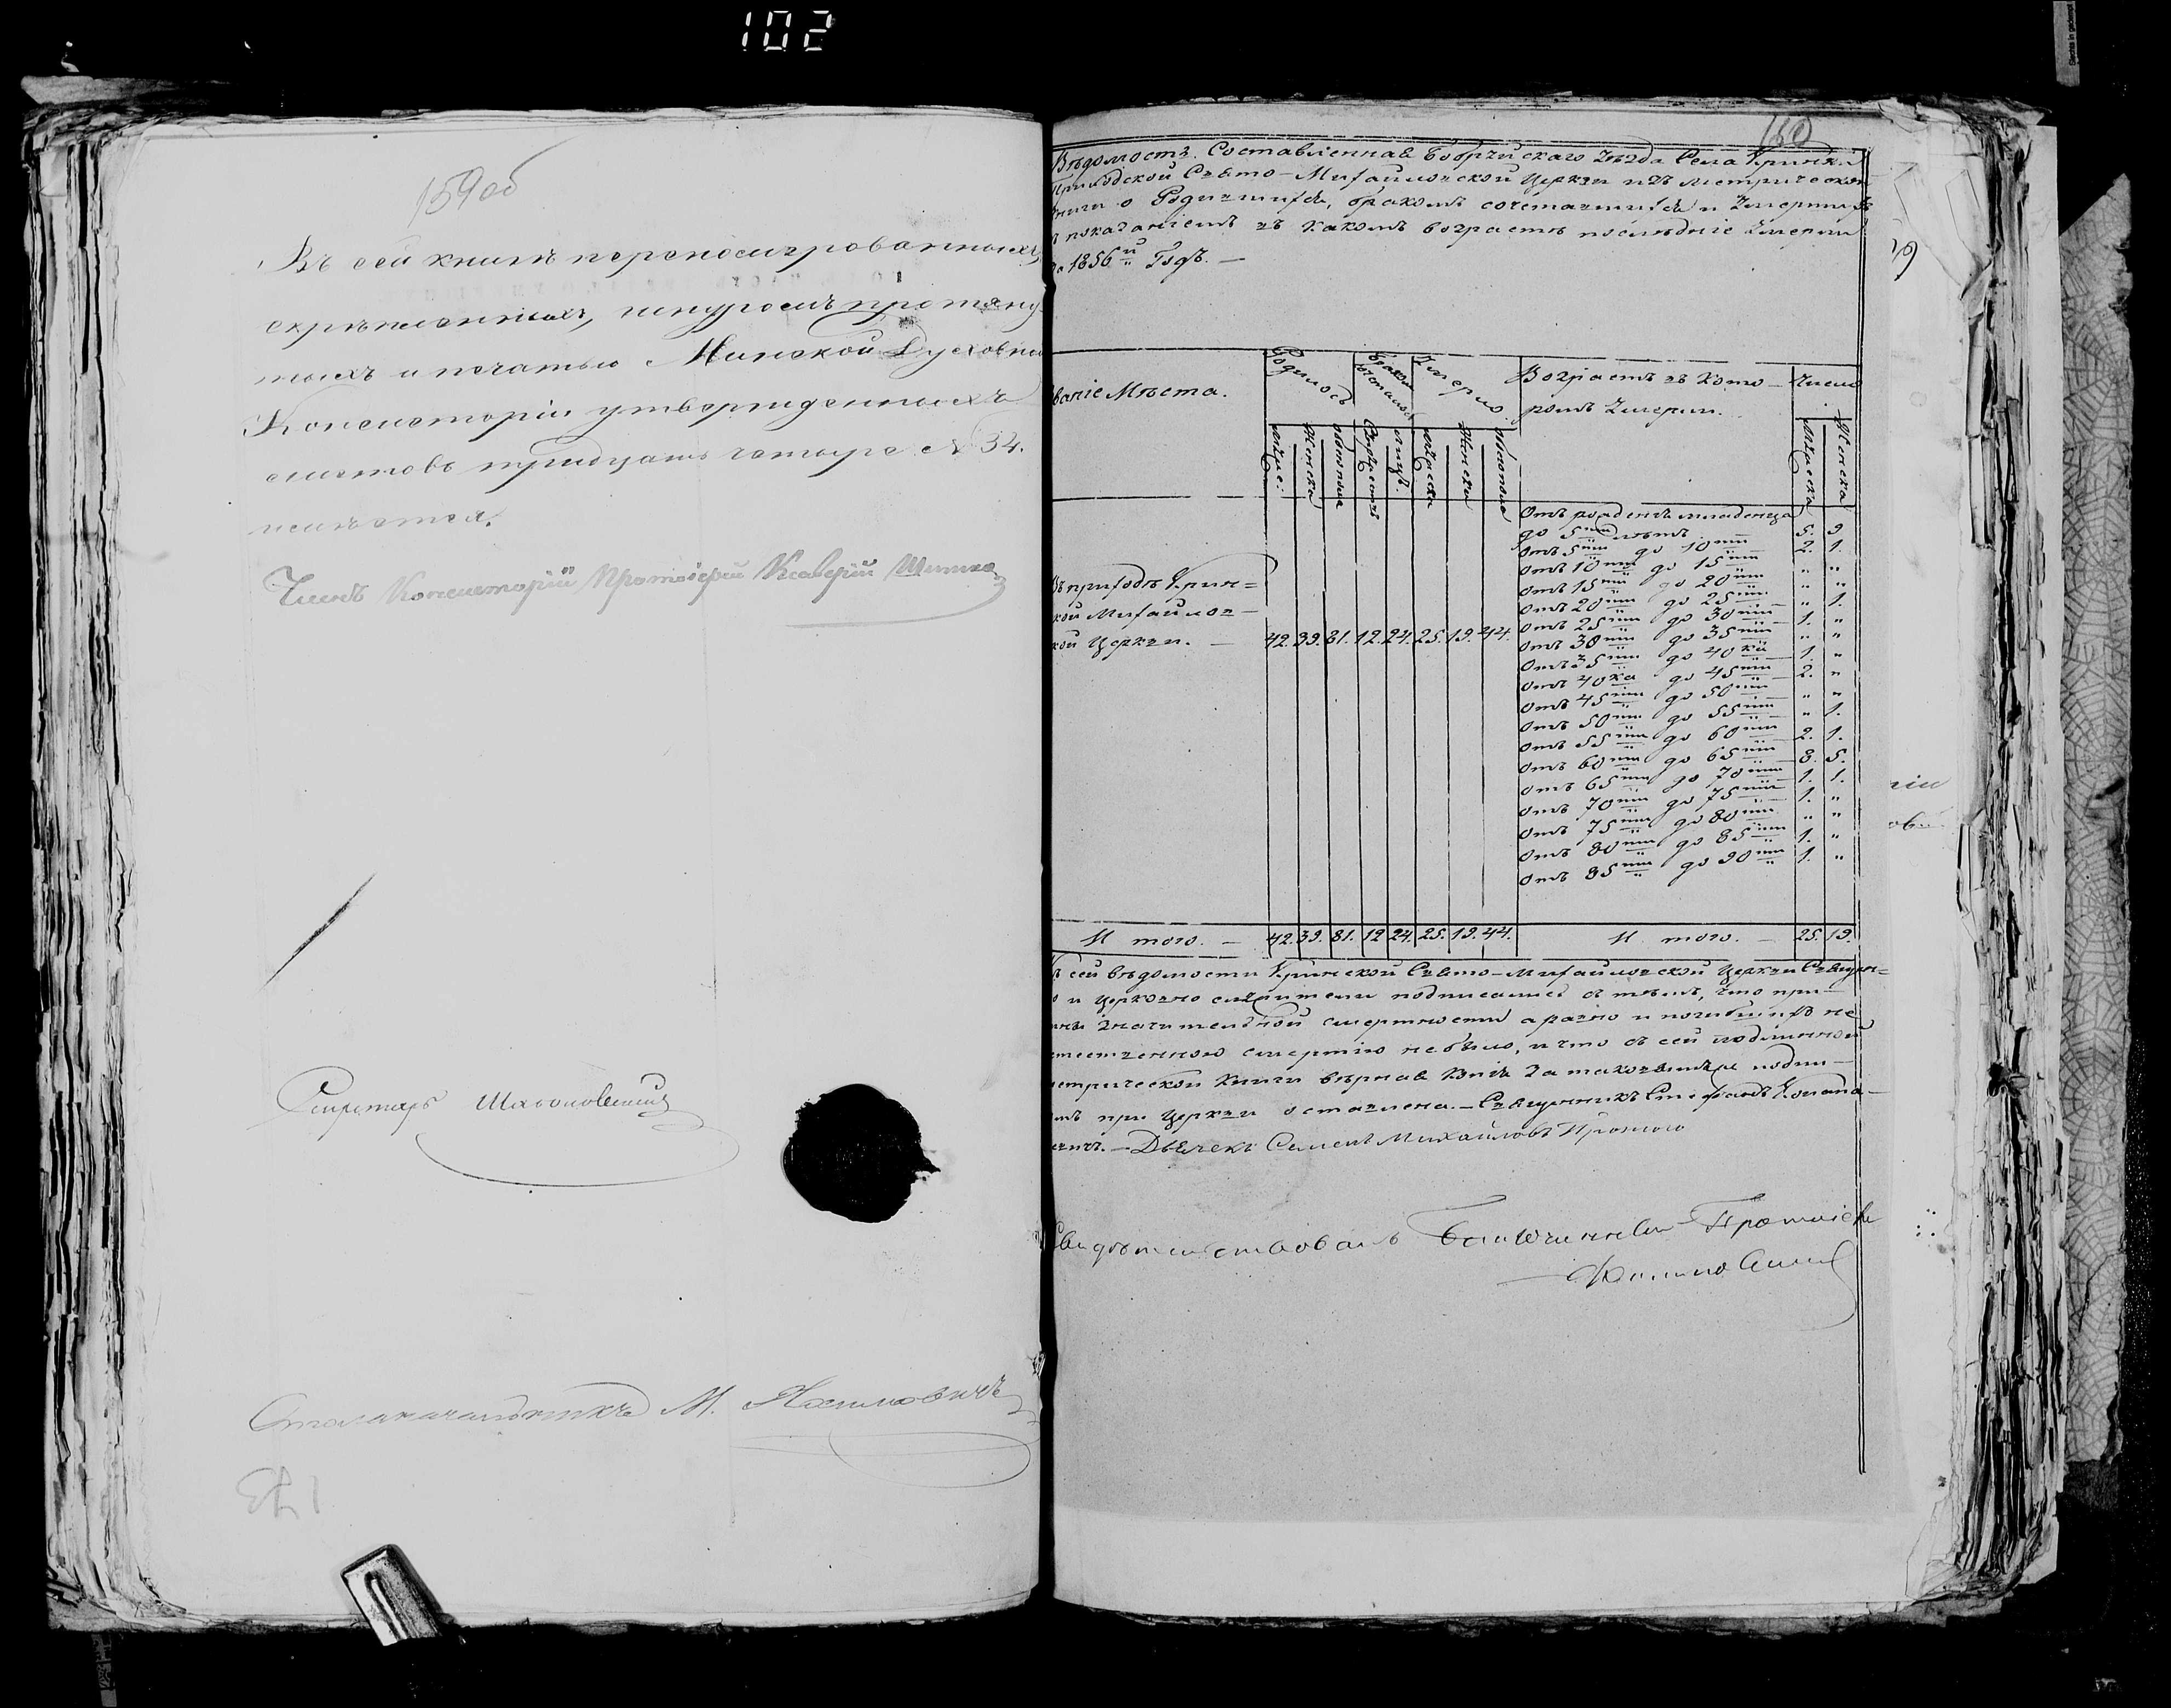 102
159об
Въ сей книгѣ перенумерованныхъ,
скрѣпленныхъ, шнуромъ протяну-
тыхъ и печатью Минской Духовной
Консисторіи утвержденныхъ
листовъ тридцать четыре № 34.
числится.
Членъ Консисторіи Протоіерей Ксаверій
Секретарь
Столоначальникъ М.
160
Вѣдомость Составленная Бобруйскаго Уѣзда Села Кринки
Приходской Свято-Михайловской Церкви изъ метрической
книги о Родившихся, бракомъ сочетавшихся и Умершихъ
показаніемъ въ какомъ возрастѣ послѣдніе Умерли
за 1856й Годъ. —
ваніе Мѣста.
Родилось
Бракомъ сочеталось
Умерло
Возрастъ въ кото-
ромъ Умерли.
Число
Мужс:
Женска
обоего пола
Супружествъ
лицъ
мужеска
Женска
обоего пола
Мужеска
Женска
Отъ рожденія младенца
до 5ти лѣтъ 5. 9
Отъ 5ти до 10ти 2. 1.
Отъ 10ти до 15ти " "
Отъ 15ти до 20ти " "
Отъ 20ти до 25ти " 1.
Отъ 25ти до 30ти 1. "
Отъ 30ти до 35ти " "
Отъ 35ти до 40ка 1. "
Отъ 40ка до 45ти 2. "
Отъ 45ти до 50ти " "
Отъ 50ти до 55ти " 1.
Отъ 55ти до 60ти 2. 1.
Отъ 60ти до 65ти 8. 5.
Отъ 65ти до 70ти 1. 1.
Отъ 70ти до 75ти 1. "
Отъ 75ти до 80ти " "
Отъ 80ти до 85ти 1. "
Отъ 85ти до 90ти 1. "
Въ приходѣ Крин-
кой Михайлов-
кой Церкви. — 42. 39. 81. 12. 24. 25. 19. 44.
И того. — 42. 39. 81. 12 24. 25. 19. 44. И того. — 25. 19.
сей вѣдомости Кринской Свято-Михайловской Церкви Священ-
и Церковно служители подписались съ тѣмъ, что при-
значительной смертности а равно и погибшихъ не
естественною смертію небыло, и что съ сей подлинной
метрической Книги вѣрная Копія за таковымъ же подпи-
при Церкви оставлена. — Священникъ Стефанъ
— Дьячекъ Семенъ Михайловъ
Свидѣтельствовалъ Благочинный Протоіерей